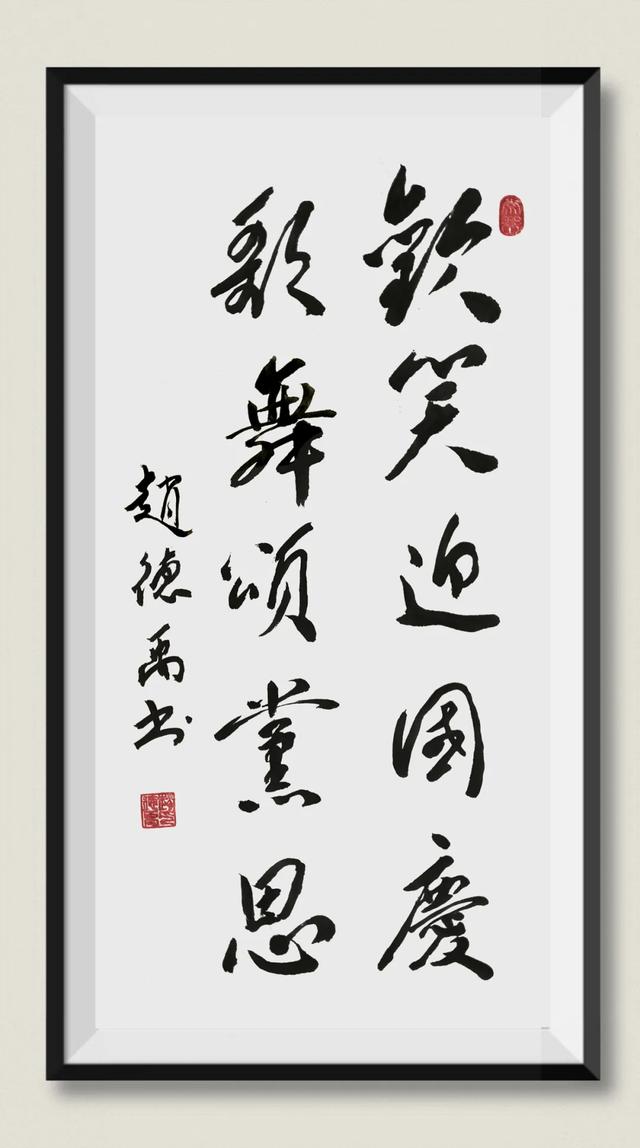 歡笑迎國慶
歌舞頌黨恩
趙德禹书